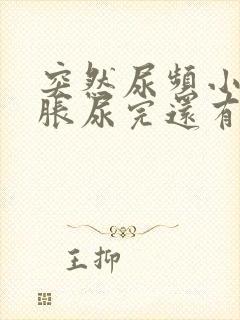 突然尿頻小
脹尿完還有
王抑